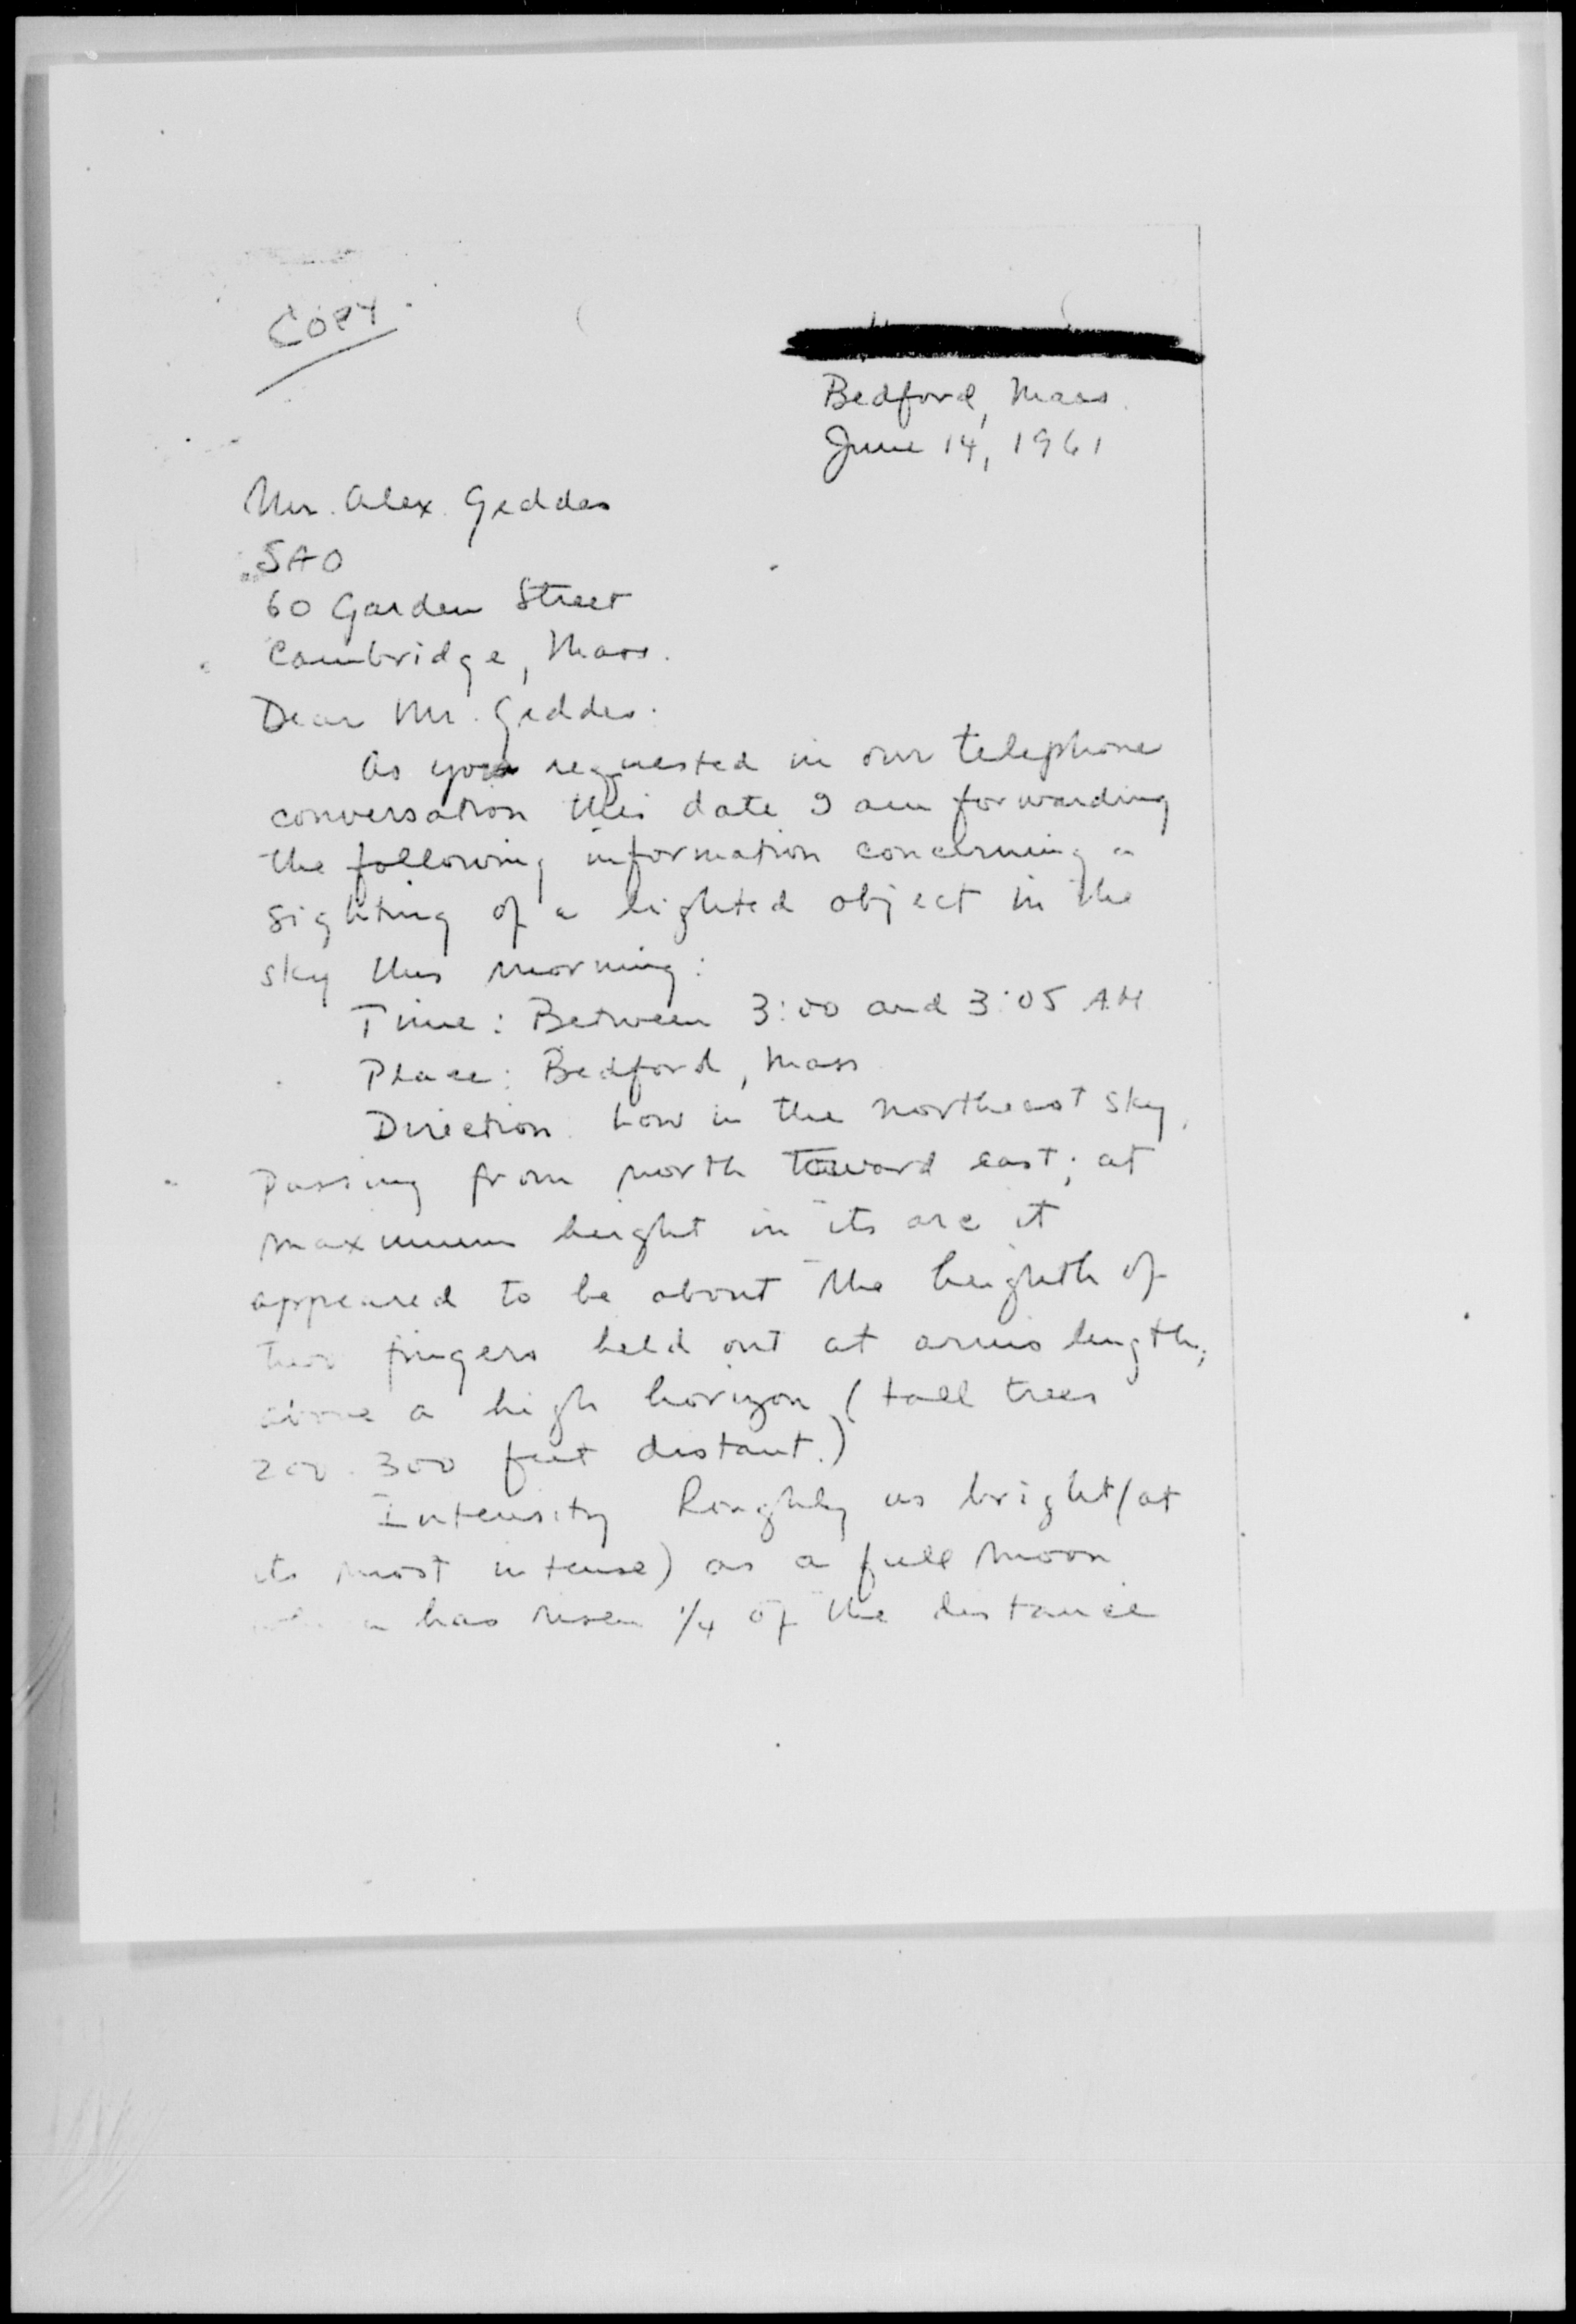 Copy.
Bedford, Mass.
June 14, 1961
Mr. Alex. Geddes
SAO
60 Garden Street
Cambridge, Mass.
Dear Mr. Geddes:
As you requested in our telephone
conversation this date I am forwarding
the following information concerning a
sighting of a lighted object in the
sky this morning:
Time: Between 3:00 and 3:05 AM
Place: Bedford, Mass
Direction: Low in the northeast sky,
passing from north toward east; at
maximum height in its arc it
appeared to be about the heighth of
two fingers held out at arms length,
above a high horizon (tall trees
200-300 feet distant.)
Intensity Roughly as bright (at
its most intense) as a full moon
has risen 1/4 of the distance